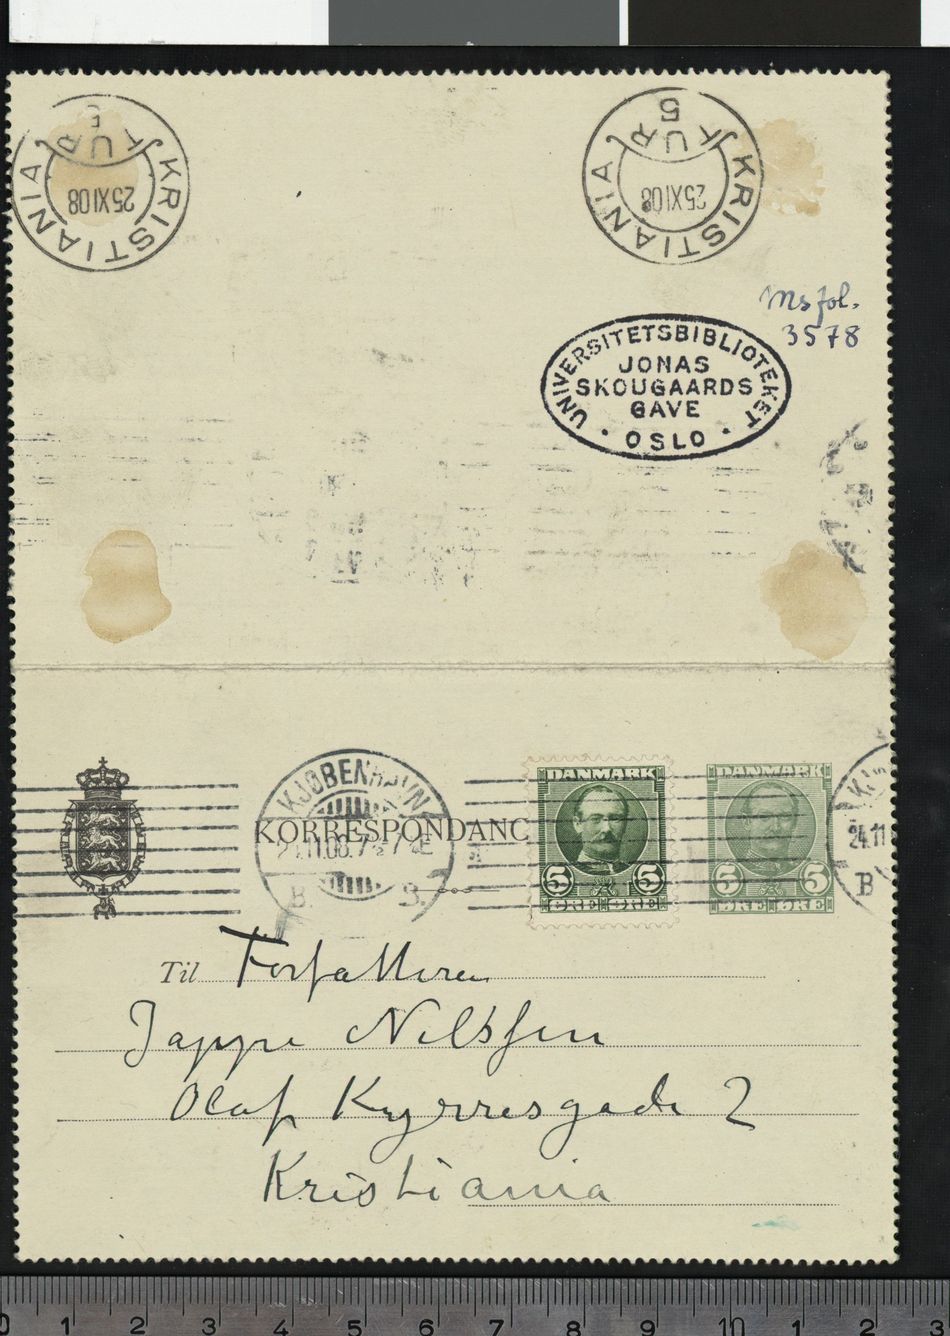 KRISTIANIA
TUR
5
25 XI 08
KRISTIANIA
TUR
5
25 XI 08
Ms fol.
3578
UNIVERSITETSBIBLIOTEKET
JONAS
SKOUGAARDS
GAVE
OSLO
KJØBENHAVN
KORRESPONDANC
B.
DANMARK
5 5
ØRE ØRE
DANMARK
5 5
ØRE ØRE
24.11
B
Til Forfatteren
Jappe Nilssen
Olaf Kyrresgade 2
Kristiania
0 1 2 3 4 5 6 7 8 9 10 1 2 3